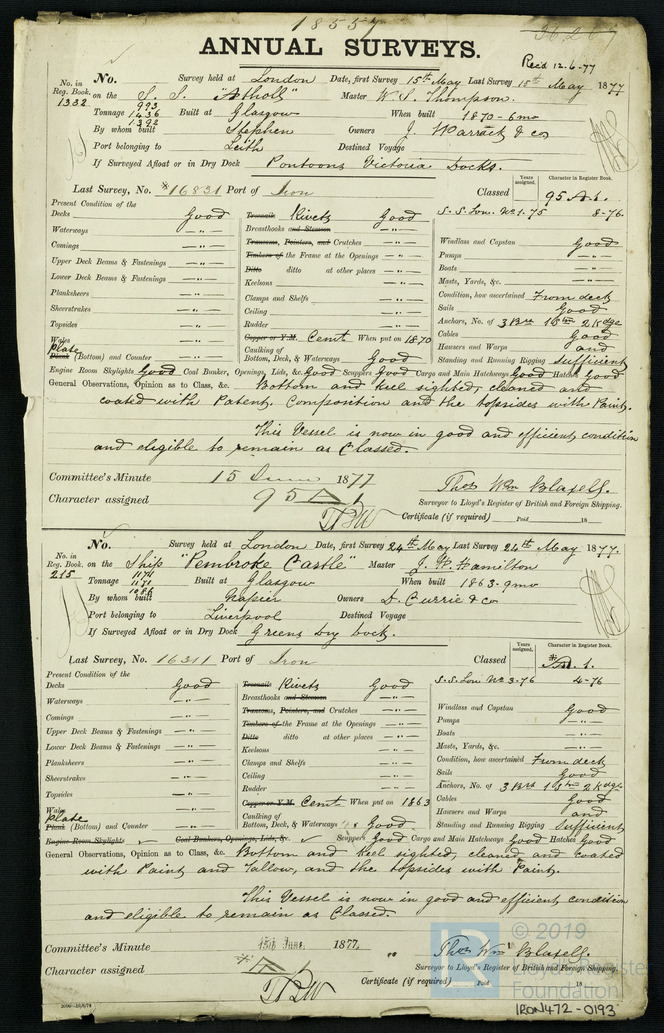 18557
3620
ANNUAL SURVEYS.
Rec'd 12-6-77
No. in Reg. Book. 1332
No. Survey held at London Date, first Survey 15th May Last Survey 18th May 1877
on the S. S. "Atholl" Master W. S. Thompson.
Tonnage 993 1436 1392 Built at Glasgow When built 1870-6mo
By whom built Stephen Owners J. Warrack & Co
Port belonging to Leith Destined Voyage
If Surveyed Afloat or in Dry Dock Pontoons Victoria Docks.
Last Survey, No. *16831 Port of Iron Classed Years assigned. Character in Register Book. 95 A.1.
Present Condition of the
Decks Good Treenails Rivets Good S.S. Lon. No 1-75 8-76.
Waterways —"— Breasthooks and Stemson —"—
Comings —"— Transoms, Pointers, and Crutches —"— Windlass and Capstan Good
Upper Deck Beams & Fastenings —"— Timbers of the Frame at the Openings —"— Pumps —"—
Lower Deck Beams & Fastenings —"— Ditto ditto at other places —"— Boats —"—
Planksheers —"— Keelsons —"— Masts, Yards, &c. —"—
Sheerstrakes —"— Clamps and Shelfs —"— Condition, how ascertained From deck
Topsides —"— Ceiling —"— Sails Good
Wales —"— Rudder —"— Anchors, No. of 3 Brs 1 Stm 2 Kdge
Plate Plank (Bottom) and Counter —"— Copper or Y.M. Cemt. When put on 1870 Cables Good
Caulking of Bottom, Deck, & Waterways Good Hawsers and Warps and
Standing and Running Rigging Sufficient
Engine Room Skylights Good Coal Bunker, Openings, Lids, &c. Good Scuppers Good Cargo and Main Hatchways Good Hatches Good
General Observations, Opinion as to Class, &c. Bottom and Keel sighted, cleaned and
coated with Patent Composition and the topsides with Paint.
This Vessel is now in good and efficient condition
and eligible to remain as Classed.
Committee's Minute 15 June 1877
Character assigned 95 A 1
Thos Wm Blaxell.
Surveyor to Lloyd's Register of British and Foreign Shipping.
Certificate (if required) Paid 18
No. in Reg. Book. 215
No. Survey held at London Date, first Survey 24th May Last Survey 24th May 1877.
on the Ship "Pembroke Castle" Master J. W. Hamilton
Tonnage 1174 1171 1086 Built at Glasgow When built 1863-9mo
By whom built Napier Owners D. Currie & Co
Port belonging to Liverpool Destined Voyage
If Surveyed Afloat or in Dry Dock Greens Dry Dock.
Last Survey, No. 16311 Port of Iron Classed Years assigned. Character in Register Book.
Present Condition of the
Decks Good Treenails Rivets Good S.S. Lon. No 3-76 4-76
Waterways —"— Breasthooks and Stemson —"—
Comings —"— Transoms, Pointers, and Crutches —"— Windlass and Capstan Good
Upper Deck Beams & Fastenings —"— Timbers of the Frame at the Openings —"— Pumps —"—
Lower Deck Beams & Fastenings —"— Ditto ditto at other places —"— Boats —"—
Planksheers —"— Keelsons —"— Masts, Yards, &c. —"—
Sheerstrakes —"— Clamps and Shelfs —"— Condition, how ascertained From deck
Topsides —"— Ceiling —"— Sails Good
Wales —"— Rudder —"— Anchors, No. of 3 Brs 1 Stm 2 Kdge
Plate Plank (Bottom) and Counter —"— Copper or Y.M. Cemt. When put on 1863 Cables Good
Caulking of Bottom, Deck, & Waterways Good. Hawsers and Warps and
Standing and Running Rigging Sufficient
Engine Room Skylights Coal Bunkers, Openings, Lids, &c. Scuppers Good Cargo and Main Hatchways Good Hatches Good
General Observations, Opinion as to Class, &c. Bottom and Keel sighted, cleaned and coated
with Paint and Tallow, and the topsides with Paint.
This Vessel is now in good and efficient condition
and eligible to remain as Classed.
Committee's Minute 15th June 1877.
Character assigned A 1
Thos Wm Blaxell.
Surveyor to Lloyd's Register of British and Foreign Shipping.
Certificate (if required) Paid 18
LR © 2019
Lloyd's Register
Foundation
IRON472-0193